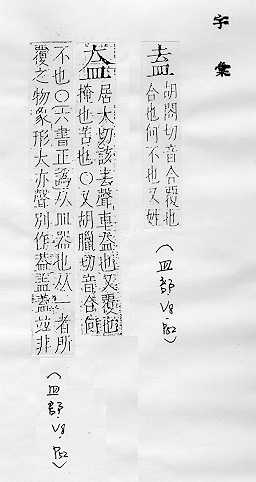 字彙
盍 胡閤切音合覆也
合也何不也又姓
(皿部.V8.P52)
盇 居大切該去聲車盇也又覆也
掩也苫也○又胡臘切音合何
不也○六書正譌从皿器也从一者所
覆之物象形大亦聲別作葢盖蓋並非
(皿部.V8.P52)